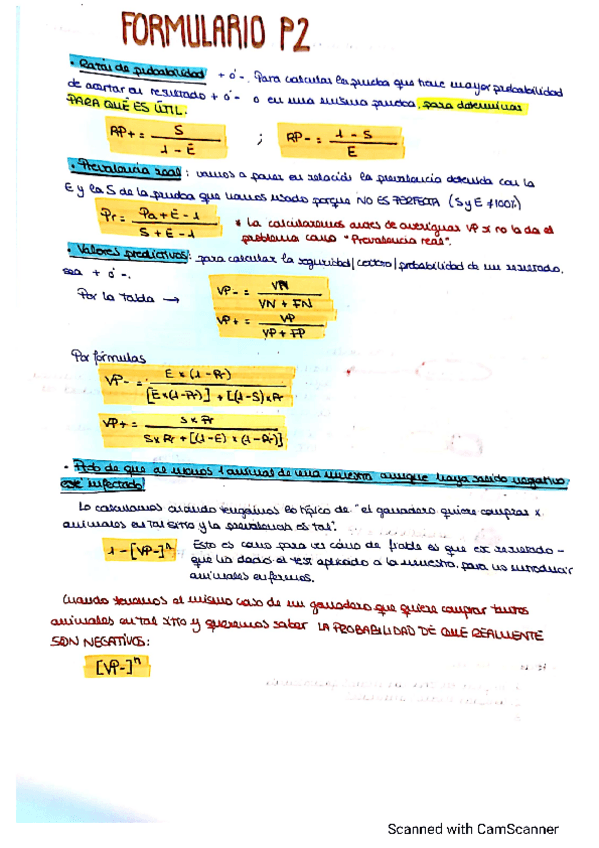 FORMULARIO P2
• Razón de probabilidad + ó -. Para calcular la prueba que tiene mayor probabilidad
de acertar su resultado + ó - o en una misma prueba, para determinar
PARA QUÉ ES ÚTIL.
RP+ = S / 1 - E ; RP- = 1 - S / E
• Prevalencia real: vamos a poner en relación la prevalencia obtenida con la
E y la S de la prueba que hemos usado porque NO ES PERFECTA (S y E ≠ 100%)
Pr = Pa + E - 1 / S + E - 1
* La calcularemos antes de averiguar VP si no la da el
problema como "Prevalencia real".
• Valores predictivos: para calcular la seguridad/certeza/probabilidad de un resultado,
sea + ó -.
Por la tabla → VP- = VN / VN + FN
VP+ = VP / VP + FP
Por fórmulas
VP- = E x (1 - Pr) / [E x (1 - Pr)] + [(1 - S) x Pr
VP+ = S x Pr / S x Pr + [(1 - E) x (1 - Pr)]
• Prob de que al menos 1 animal de una muestra aunque haya salido negativo,
esté infectado
Lo calculamos cuando tengamos lo típico de "el ganadero quiere comprar x
animales en tal sitio y la prevalencia es tal".
1 - [VP-]ⁿ Esto es como para ver cómo de fiable es que ese resultado -
que ha dado el test aplicado a la muestra, para no introducir
animales enfermos.
Cuando tenemos el mismo caso de un ganadero que quiere comprar tantos
animales en tal sitio y queremos saber LA PROBABILIDAD DE QUE REALMENTE
SON NEGATIVOS:
[VP-]ⁿ
Scanned with CamScanner